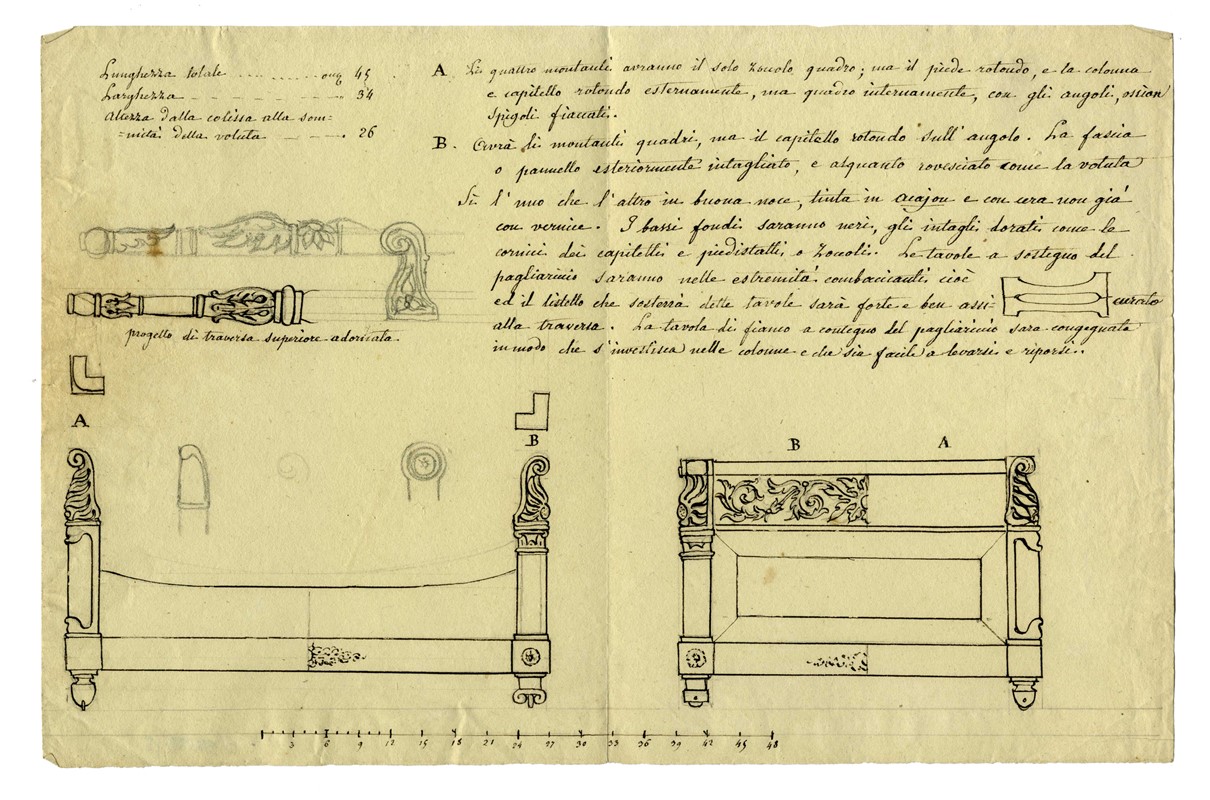 Lunghezza totale .......... onz 45
Larghezza .......... " 34
Altezza dalla colissa alla som=
=mità della voluta .......... 26
A Li quattro montanti avranno il solo zoccolo quadro; ma il piede rotondo, e la colonna
e capitello rotondo esternamente, ma quadro internamente, con gli angoli, ossian
spigoli fiaccati.
B. Avrà li montanti quadri, ma il capitello rotondo sull'angolo. La fascia
o pannello esteriormente intagliato, e alquanto rovesciato come la voluta
Sì l'uno che l'altro in buona noce, tinta in acajou e con cera non già
con vernice. I bassi fondi saranno neri, gli intagli dorati come le
cornici dei capitelli e piedistalli o zoccoli. Le tavole a sostegno del
pagliariccio saranno nelle estremità combaccianti cioè
ed il listello che sosterrà dette tavole sarà forte e ben assi
curato
alla traversa. La tavola di fianco a contegno del pagliariccio sara congegnata
in modo che s'investisca nelle colonne e che sia facile a levarsi e riporsi.
progetto di traversa superiore adornata.
A
B
B A
3 6 9 12 15 18 21 24 27 30 33 36 39 42 45 48